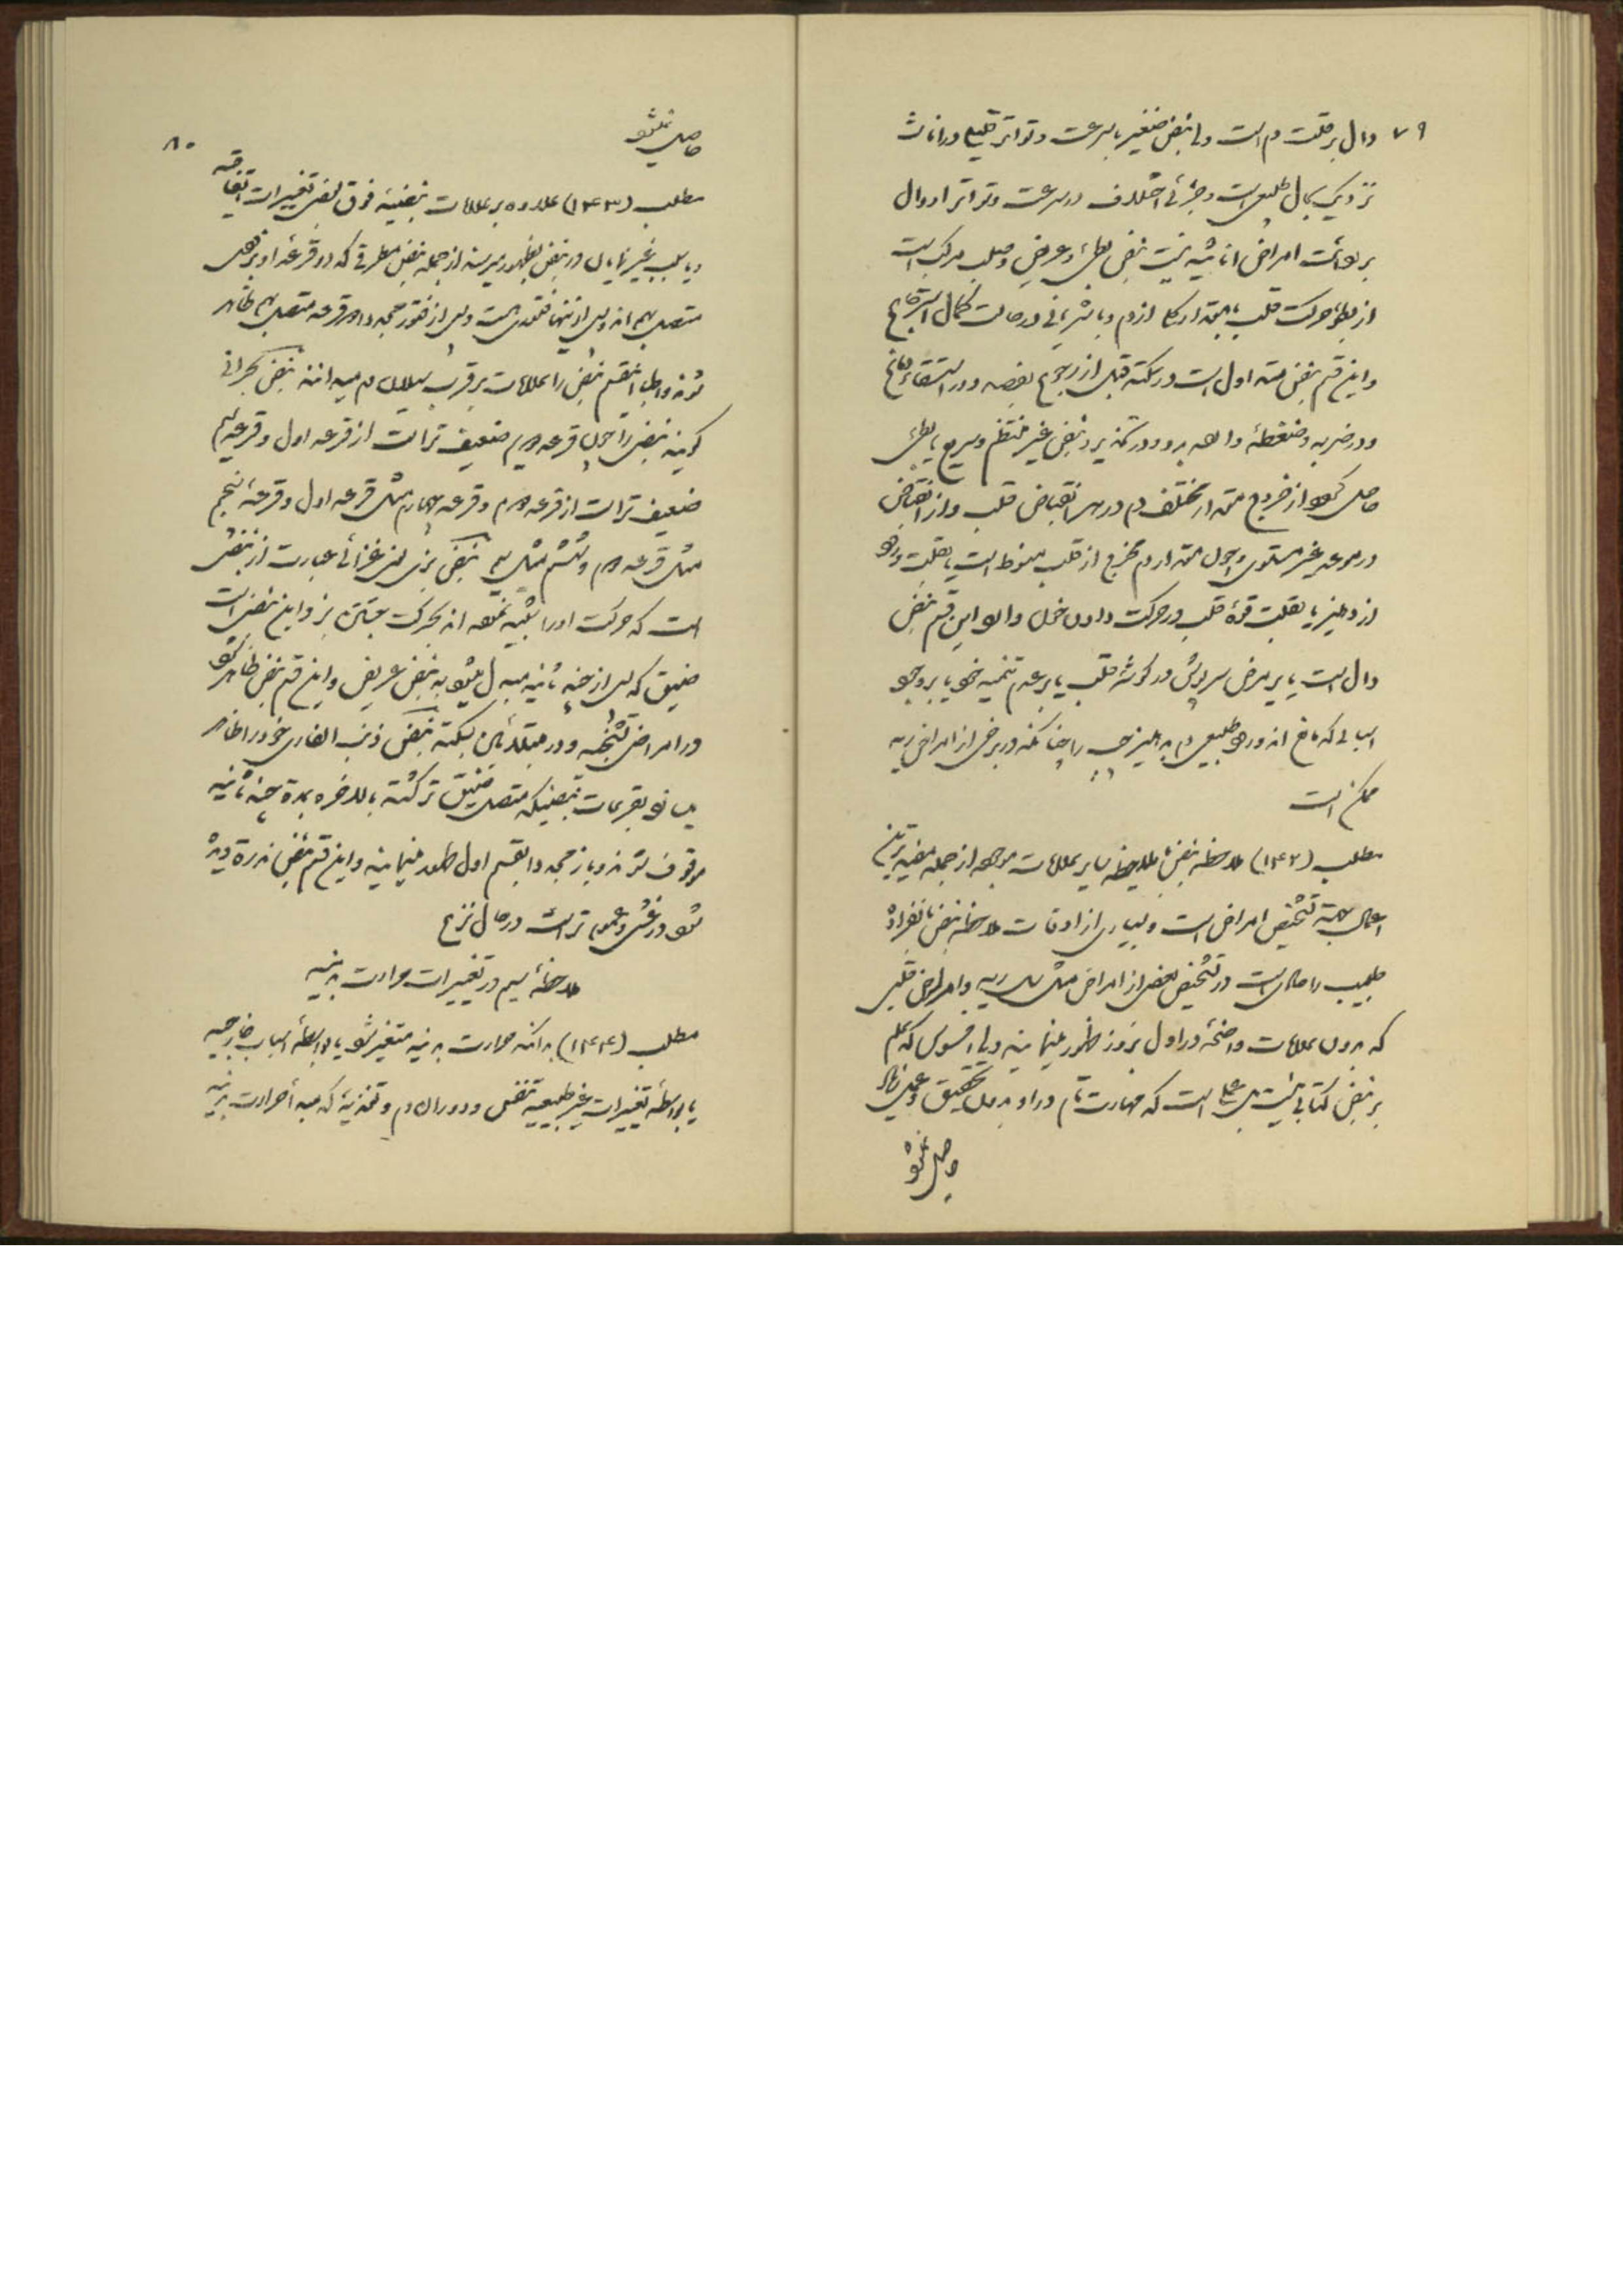 ۷۹
دال بر قلت دم است ولی نبض صغیر با سرعت و تواتر قلیل در اناث
نزدیک بحال طبیعی است و جزئی اختلاف در سرعت و تواتر او دال
بر امراض اناثیه نیست نبض بطیء و عریض و صلب مرکب است
از بطؤ حرکت قلب با مقدار کم از دم و یا شریانی در حالت کمال
و این قسم نبض اول است در سکته قبل از رجوع بقصد و در استسقاء دماغ
و در ضربه و ضغطه وارده بر نبض غیر منتظم و سریع یا بطیء
حاصل گردد از خروج مقدار مختلف دم در هر انقباض قلب و از انقباض
در موعد غیر مستوی و چون مقدار دم مخرج از قلب منوط است یا بقلت ورود
از دهلیز یا بقلت قوه قلب در حرکت دادن خون وارد این قسم نبض
دال است یا بر مرض سرپوش در گوشه قلب یا بر عدم تنمیه خود یا بر وجود
اسبابی که مانع اند ورود طبیعی دم به دهلیز چپ را چنانکه در برخی از امراض ریه
ممکن است
مطلب (۱۴۲) ملاحظه نبض با ملاحظه سایر علامات موجوده از جمله مفیدترین
اعمال بجهة تشخیص امراض است و بسیاری از اوقات ملاحظه نبض بانفراده
طبیب را کافی است در تشخیص بعضی از امراض مثل سل ریه و امراض قلبی
که بدون علامات واضحه در اول بروز ظهور مینمایند ولی افسوس که علم
بر نبض کتابی نیست بل عملی است که مهارت تام در او بدون تحقیق و عمل زیاد
حاصل نشود
۸۰
حاصل نمیشود
مطلب (۱۴۳) علاوه بر علامات نبضیه فوق بعضی تغییرات اتفاقیه
و یا بسبب غیر نمایان در نبض بظهور میرسد از جمله نبض مطرقی که دو قرعه او بر نبض
متصل بهم اند و پس از آنها فتوری است و پس از فتور مجدداً دو قرعه متصل بهم ظاهر
شود و اطبا این قسم نبض را علامت بر قرب سیلان دم میدانند نبض بحرانی
گویند نبضی را چون قرعه دویم ضعیف تر است از قرعه اول و قرعه سیم
ضعیف تر است از قرعه دویم و قرعه چهارم مثل قرعه اول و قرعه پنجم
مثل قرعه دویم و ششم مثل سیم نبض بزی یعنی غزالی عبارت از نبضی
است که حرکت او را تشبیه نموده اند بحرکت جستن بز و این نبضی است
ضیق که پس از چند ثانیه مبدل میشود به نبض عریض و این قسم نبض ظاهر شود
در امراض تشنجیه و در مبتلایان بسکته نبض ذنب الفاری خود را ظاهر
میسازد بقرعات نبضیکه متصل ضیق تر گشته بالاخره بمدة چند ثانیه
موقوف شوند و باز مجدداً بقسم اول ظهور مینمایند و این قسم نبض بندرة دیده
شود در غشی و عموم تر است در حال نزع
ملاحظه سیم در تغییرات حرارت بدنیه
مطلب (۱۴۴) بدانکه حرارت بدنیه متغیر شود یا بواسطه اسباب خارجیه
یا بواسطه تغییرات غیر طبیعیه تنفس و دوران دم و تغذیه که مبدأ حرارت بدنیه